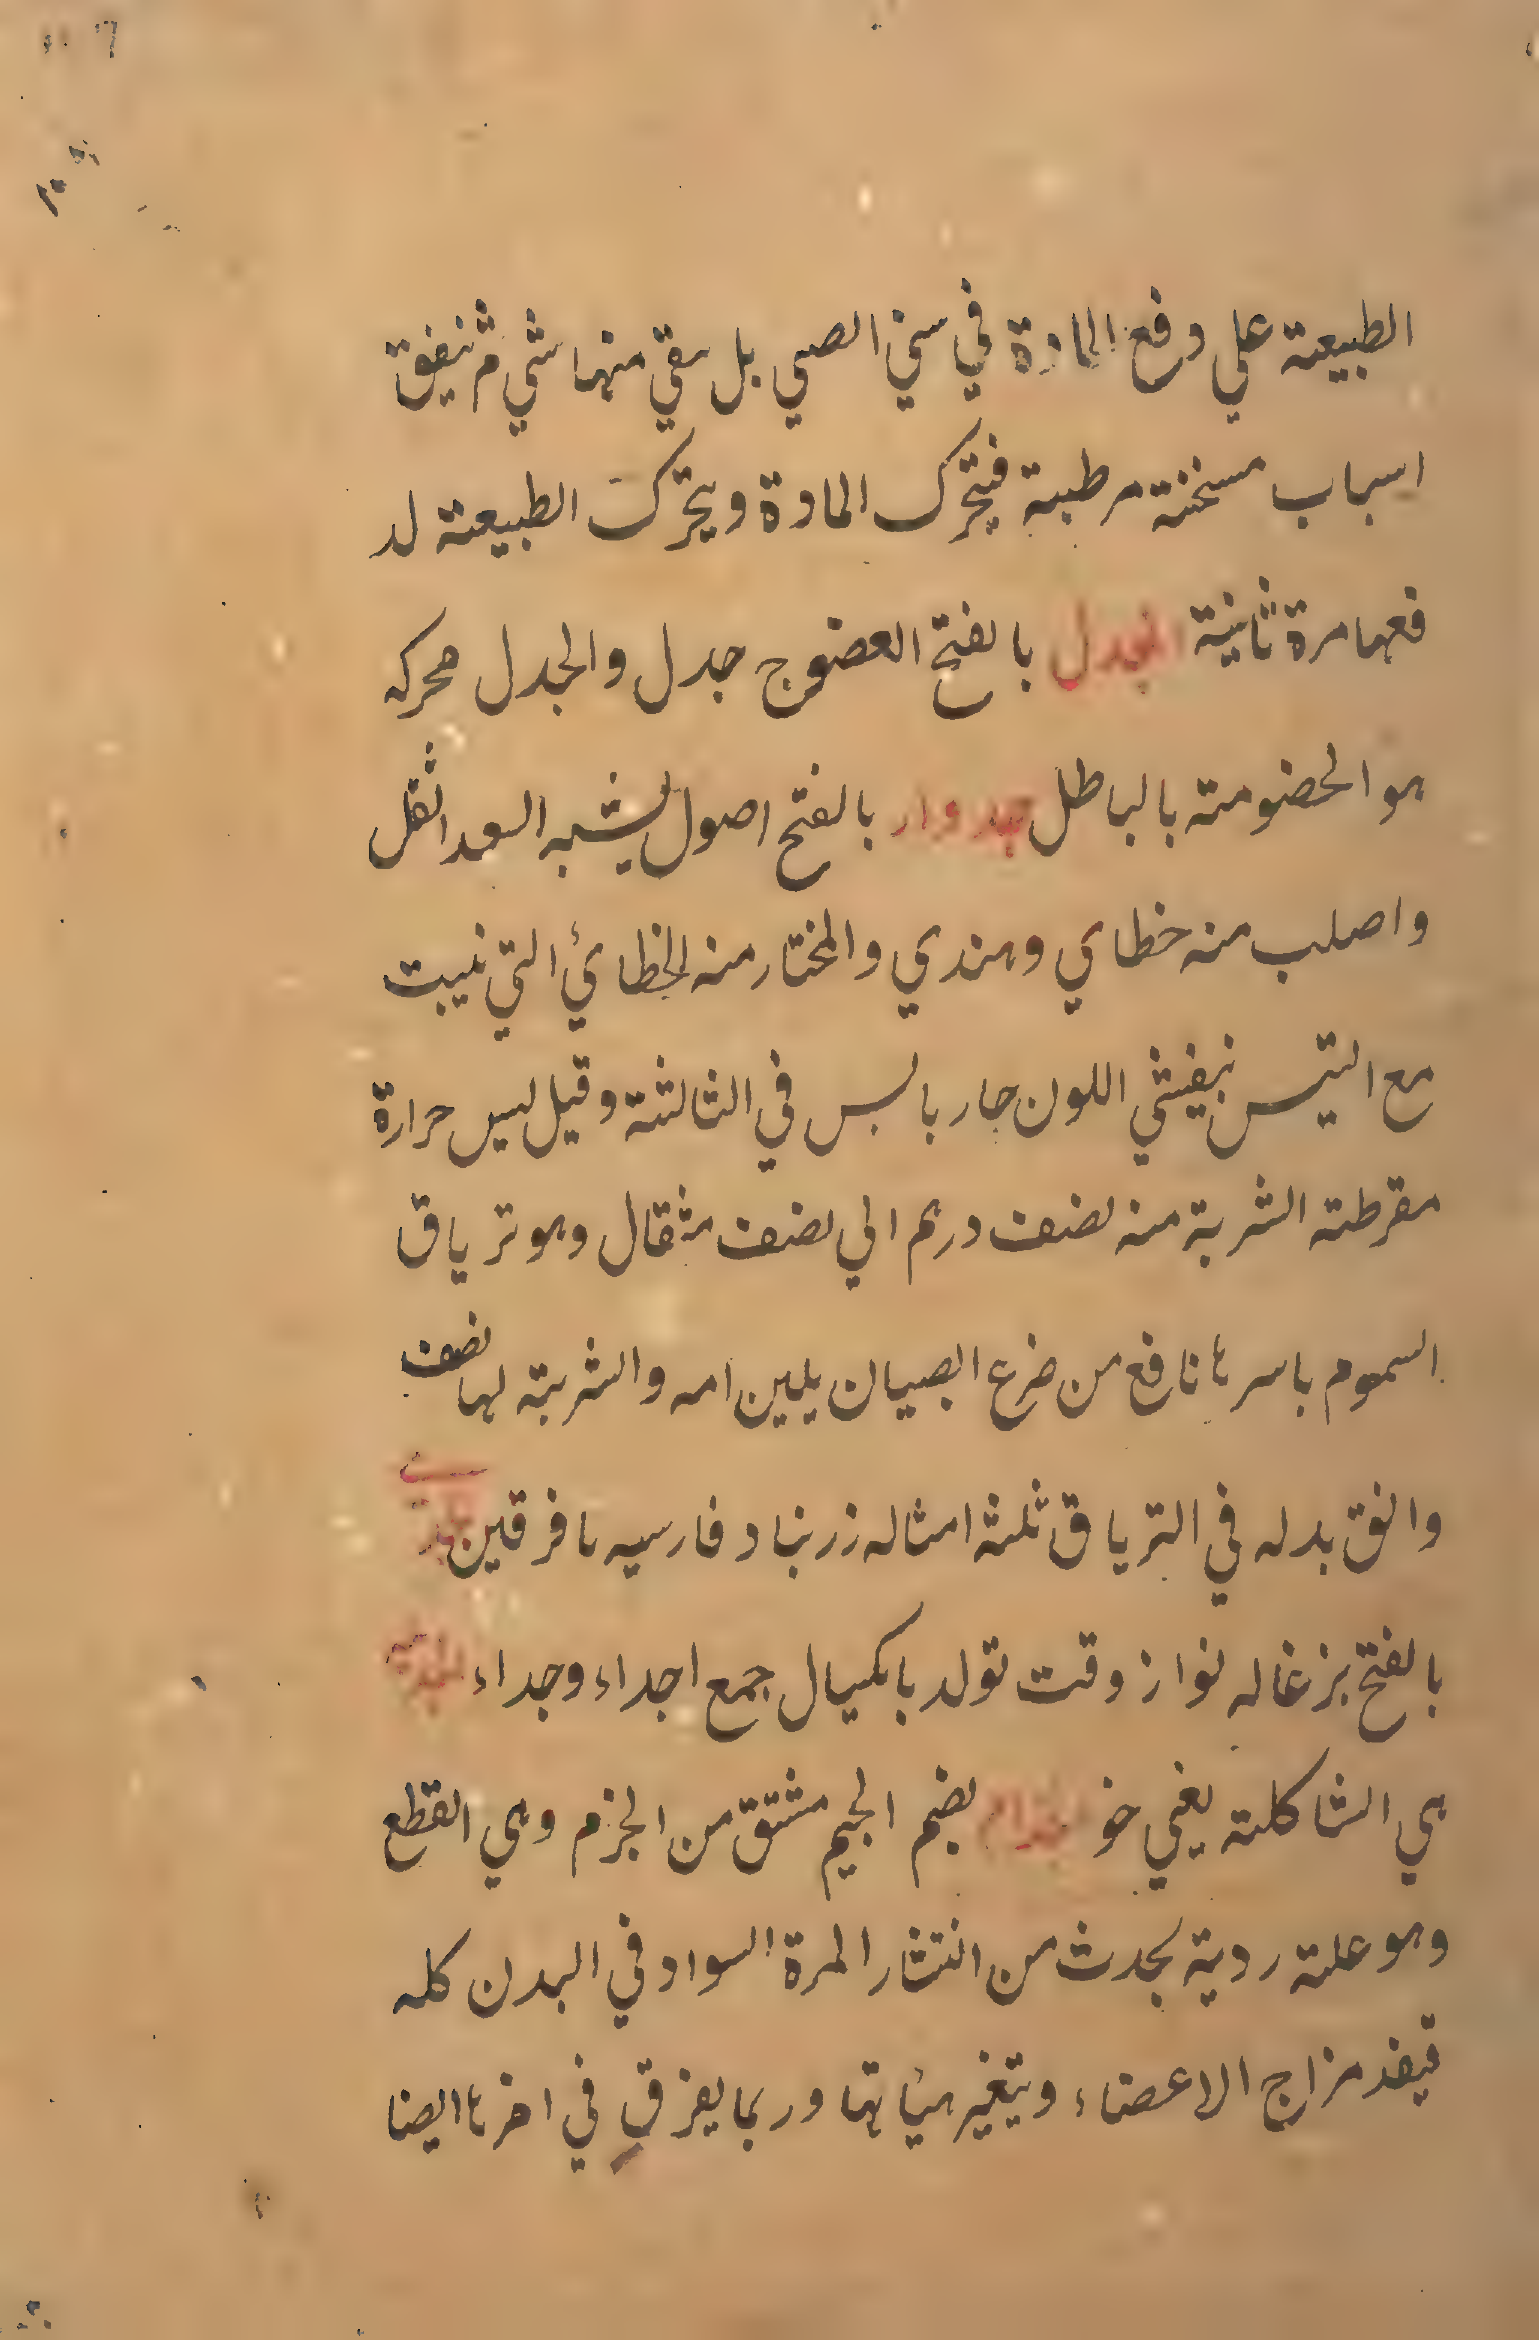 الطبيعة علي دفع المادة في سني الصبي بل يبقي منها شي ثم نيفق
اسباب مسخنة مرطبة فتحرك المادة ويحرك الطبيعة لد
فعها مرة ثانية الجدل بالفتح العضو ج جدل والجدل محركه
هو الخضومة بالباطل جدوار بالفتح اصول يشبه السعد اثقل
واصلب منه خطاي وهندي والمختار منه الخطائي التي نيبت
مع البيس نبفشي اللون حار يابس في الثالثة وقيل ليس حرارة
مفرطة الشربة منه نصف درهم الي نصف مثقال وهو ترياق
السموم باسرها نافع من ضرع الصبيان بلبن امه والشربة لها نصف
وانق بدله في الترياق ثلثة امثاله زرنباد فارسيه مافرقين جدي
بالفتح بزغاله نواز وقت تولد بالكيال جمع اجداء وجداء
هي الشاكلة يعني خو جذام بضم الجيم مشتق من الجزم وهي القطع
وهو علة ردية يحدث من انتشار المرة السواد في البدن كله
فيفد مزاج الاعضاء ويتغير هياتها وربما يفرق في اخرها ايضا